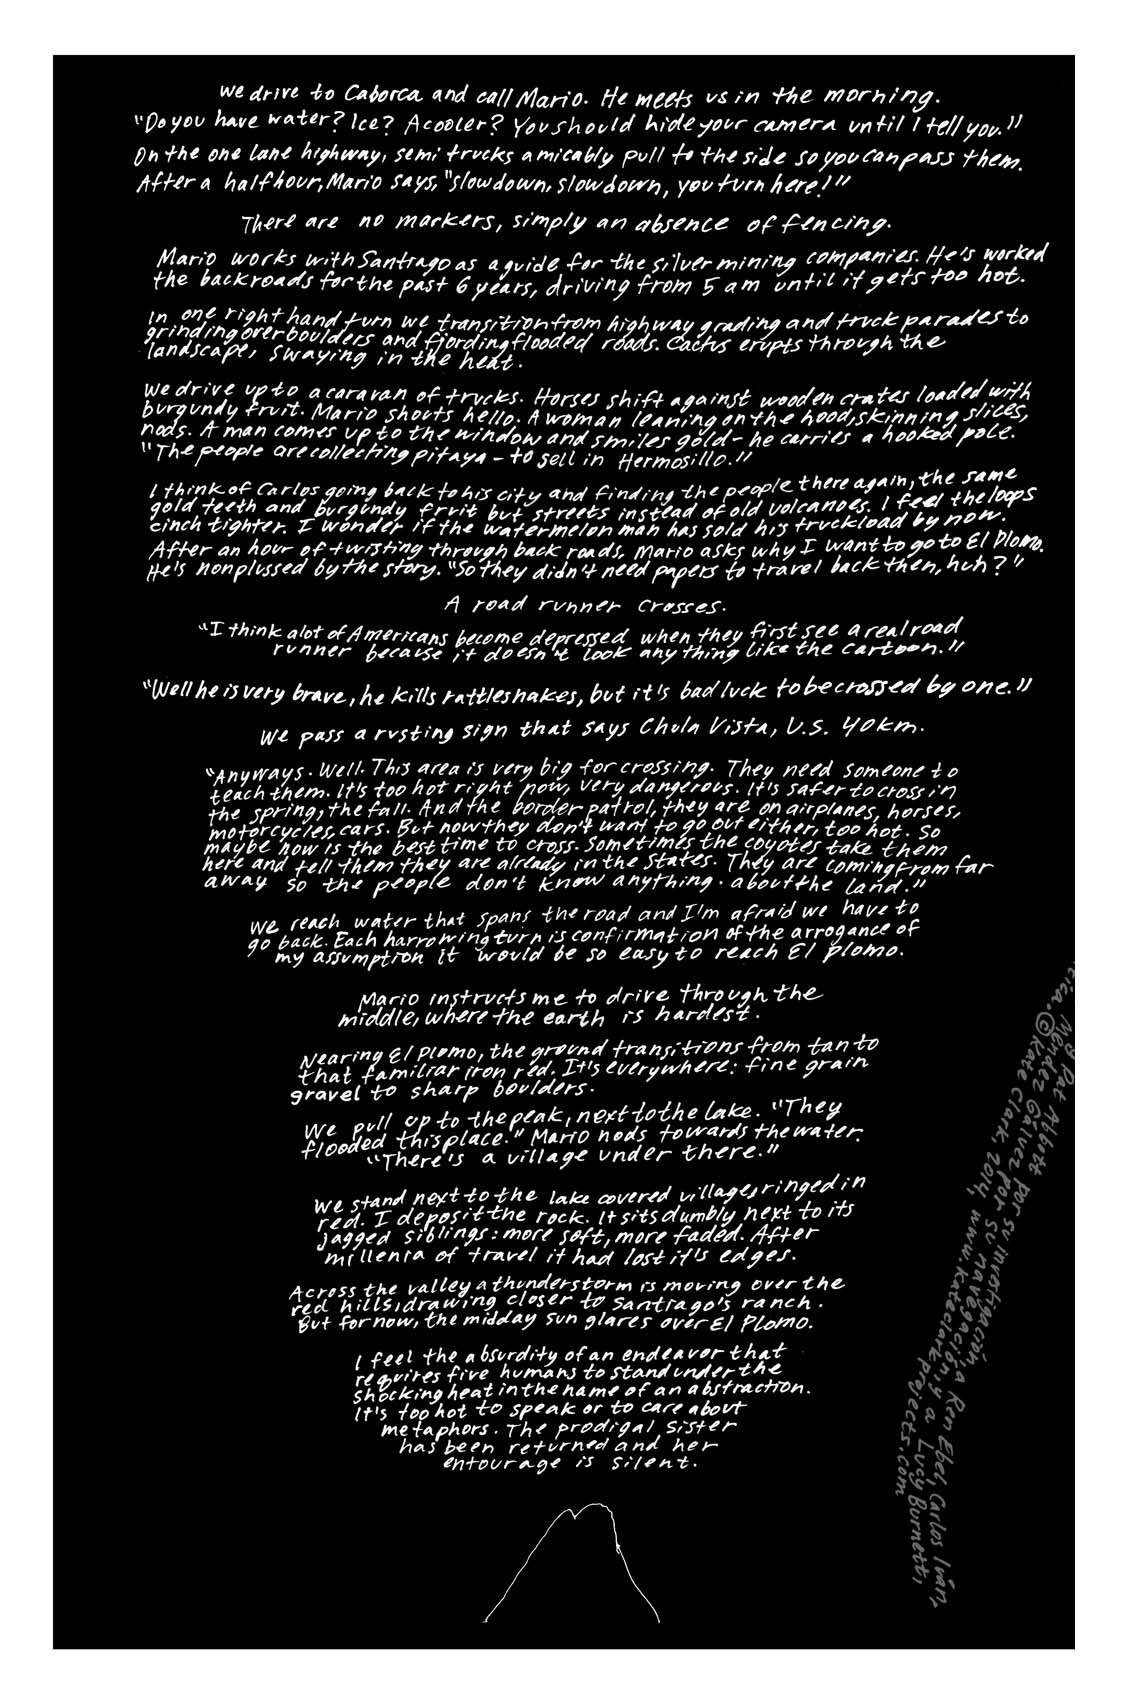 We drive to Caborca and call Mario. He meets us in the morning.
"Do you have water? Ice? A cooler? You should hide your camera until I tell you."
On the one lane highway, semi trucks amicably pull to the side so you can pass them.
After a half hour, Mario says, "slow down, slow down, you turn here!"
There are no markers, simply an absence of fencing.
Mario works with Santiago as a guide for the silver mining companies. He's worked
the back roads for the past 6 years, driving from 5 am until it gets too hot.
In one right hand turn we transition from highway grading and truck parades to
grinding over boulders and fjording flooded roads. Cactus erupts through the
landscape, swaying in the heat.
We drive up to a caravan of trucks. Horses shift against wooden crates loaded with
burgundy fruit. Mario shouts hello. A woman leaning on the hood, skinning slices,
nods. A man comes up to the window and smiles gold - he carries a hooked pole.
"The people are collecting pitaya - to sell in Hermosillo."
I think of Carlos going back to his city and finding the people there again, the same
gold teeth and burgundy fruit but streets instead of old volcanoes. I feel the loops
cinch tighter. I wonder if the watermelon man has sold his truckload by now.
After an hour of twisting through back roads, Mario asks why I want to go to El Plomo.
He's nonplussed by the story. "So they didn't need papers to travel back then, huh?"
A road runner crosses.
"I think alot of Americans become depressed when they first see a real road
runner because it doesn't look anything like the cartoon."
"Well he is very brave, he kills rattlesnakes, but it's bad luck to be crossed by one."
We pass a rusting sign that says Chula Vista, U.S. 40km.
"Anyways. Well. This area is very big for crossing. They need someone to
teach them. It's too hot right now, very dangerous. It's safer to cross in
the spring, the fall. And the border patrol, they are on airplanes, horses,
motorcycles, cars. But now they don't want to go out either, too hot. So
maybe now is the best time to cross. Sometimes the coyotes take them
here and tell them they are already in the States. They are coming from far
away so the people don't know anything. about the land."
We reach water that spans the road and I'm afraid we have to
go back. Each harrowing turn is confirmation of the arrogance of
my assumption it would be so easy to reach El Plomo.
Mario instructs me to drive through the
middle, where the earth is hardest.
Nearing El Plomo, the ground transitions from tan to
that familiar iron red. It's everywhere: fine grain
gravel to sharp boulders.
We pull up to the peak, next to the lake. "They
flooded this place." Mario nods towards the water.
"There's a village under there."
We stand next to the lake covered village, ringed in
red. I deposit the rock. It sits dumbly next to its
jagged siblings: more soft, more faded. After
millenia of travel it had lost it's edges.
Across the valley a thunderstorm is moving over the
red hills, drawing closer to Santiago's ranch.
But for now, the midday sun glares over El Plomo.
I feel the absurdity of an endeavor that
requires five humans to stand under the
shocking heat in the name of an abstraction.
It's too hot to speak or to care about
metaphors. The prodigal sister
has been returned and her
entourage is silent.
Pat Abbott por su investigación, a Ren Ebel, Carlos Iván,
Méndez Gálvez por su navegación, y a Lucy Burnett,
©Kate Clark, 2014, www.kateclarkprojects.com